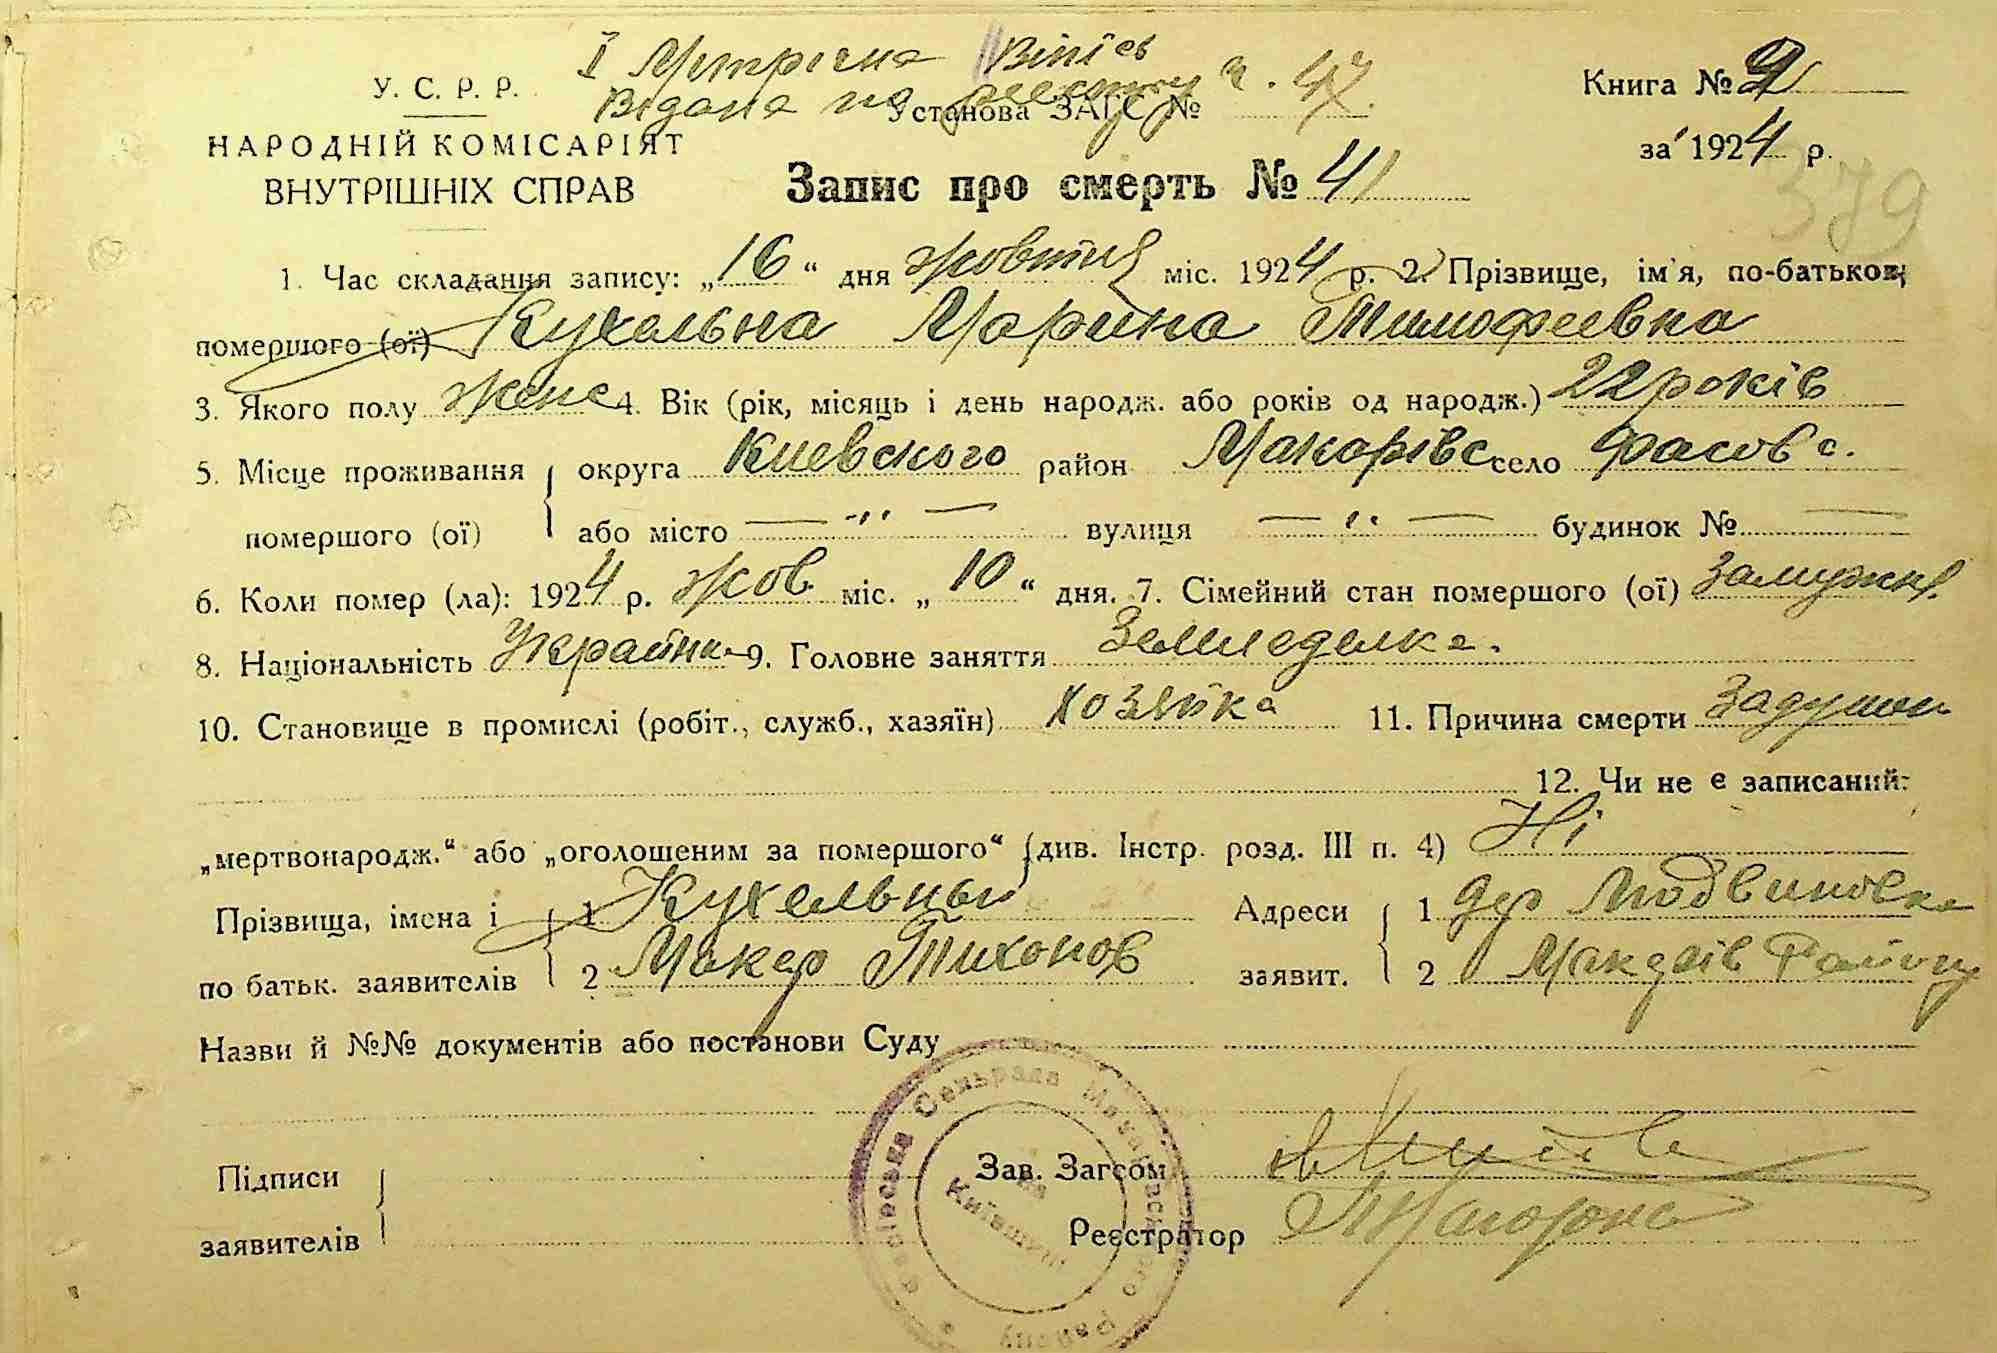 І Метрична Віпісь
Відана по реестру ч. 47.
У. С. Р. Р.
НАРОДНІЙ КОМІСАРІЯТ
ВНУТРІШНІХ СПРАВ
Установа ЗАГС №
Книга № 2
за 1924 р.
379
Запис про смерть № 41
1. Час складання запису: „16“ дня жовтня міс. 1924 р. 2. Прізвище, ім'я, по-батькові
помершого (ої) Кухельна Марина Тимофеевна
3. Якого полу женс 4. Вік (рік, місяць і день народж. або років од народж.) 22 років
5. Місце проживання округа Киевского район Макарівс село Фасов с.
помершого (ої) або місто — „ — вулиця — „ — будинок № —
6. Коли помер (ла): 1924 р. жов міс. „10“ дня. 7. Сімейний стан помершого (ої) Замужня.
8. Національність Украйн 9. Головне заняття Земледелка.
10. Становище в промислі (робіт., служб., хазяїн) хозяйка 11. Причина смерти
12. Чи не є записаний:
„мертвонародж.“ або „оголошеним за помершого“ (див. Інстр. розд. III п. 4) Ні
Прізвища, імена і 1 Кухельный Адреси 1 дер Людвиновка
по батьк. заявителів 2 Макар Тихонов заявит. 2 Району
Назви й №№ документів або постанови Суду
Підписи Зав. Загсом
заявителів Реєстратор
Сельрада Макарівського Району
на Київщині